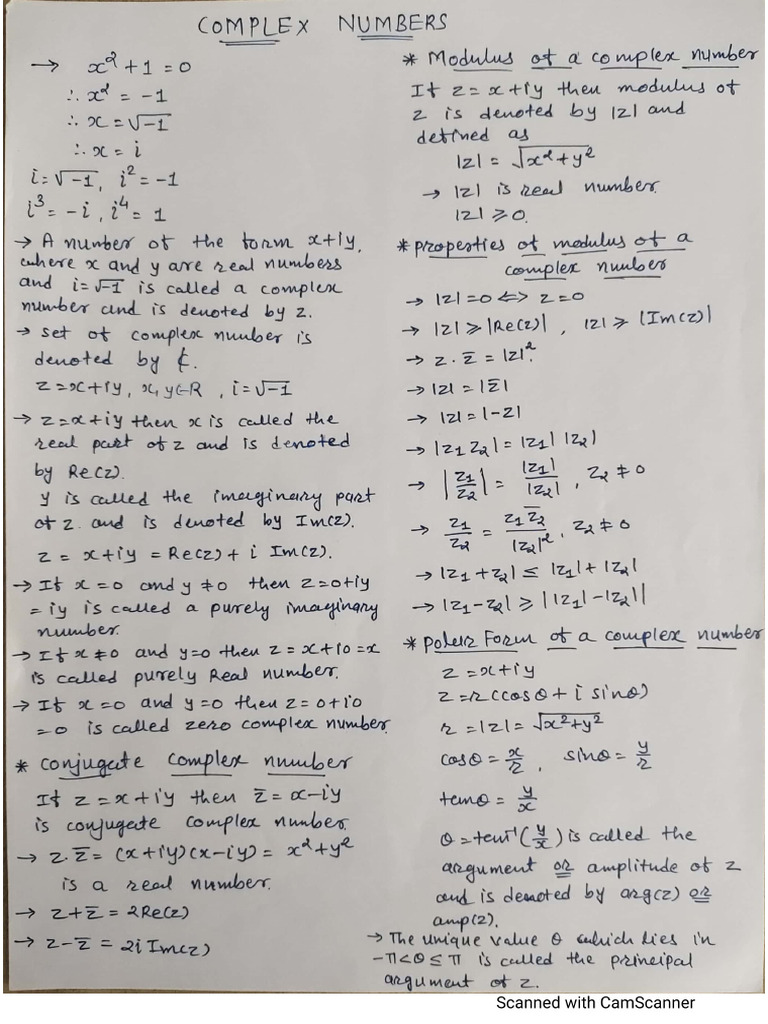 COMPLEX NUMBERS
→ x² + 1 = 0
∴ x² = -1
∴ x = √-1
∴ x = i
i = √-1, i² = -1
i³ = -i, i⁴ = 1
→ A number of the form x+iy,
where x and y are real numbers
and i=√-1 is called a complex
number and is denoted by z.
→ set of complex number is
denoted by ₵.
z = x+iy, x, y ∈ R, i = √-1
→ z=x+iy then x is called the
real part of z and is denoted
by Re(z).
y is called the imaginary part
of z. and is denoted by Im(z).
z = x+iy = Re(z) + i Im(z).
→ If x=0 and y≠0 then z=0+iy
= iy is called a purely imaginary
number.
→ If x≠0 and y=0 then z = x+i0 = x
is called purely Real number.
→ If x=0 and y=0 then z=0+i0
=0 is called zero complex number
* Conjugate complex number
If z = x+iy then z̅ = x-iy
is conjugate complex number.
→ z·z̅ = (x+iy)(x-iy) = x²+y²
is a real number.
→ z+z̅ = 2Re(z)
→ z-z̅ = 2i Im(z)
* Modulus of a complex number
If z = x+iy then modulus of
z is denoted by |z| and
defined as
|z| = √x²+y²
→ |z| is real number.
|z| ≥ 0.
* Properties of modulus of a
complex number
→ |z|=0 ⇔ z=0
→ |z| ≥ |Re(z)|, |z| ≥ |Im(z)|
→ z·z̅ = |z|².
→ |z| = |z̅|
→ |z| = |-z|
→ |z₁ z₂| = |z₁| |z₂|
→ |z₁/z₂| = |z₁|/|z₂|, z₂ ≠ 0
→ z₁/z₂ = z₁ z̅₂/|z₂|², z₂ ≠ 0
→ |z₁+z₂| ≤ |z₁|+|z₂|
→ |z₁-z₂| ≥ ||z₁|-|z₂||
* Polar Form of a complex number
z = x+iy
z = r(cosθ + i sinθ)
r = |z| = √x²+y²
cosθ = x/r, sinθ = y/r
tanθ = y/x
θ = tan⁻¹(y/x) is called the
argument or amplitude of z
and is denoted by arg(z) or
amp(z).
→ The unique value θ which lies in
-π<θ≤π is called the principal
argument of z.
Scanned with CamScanner